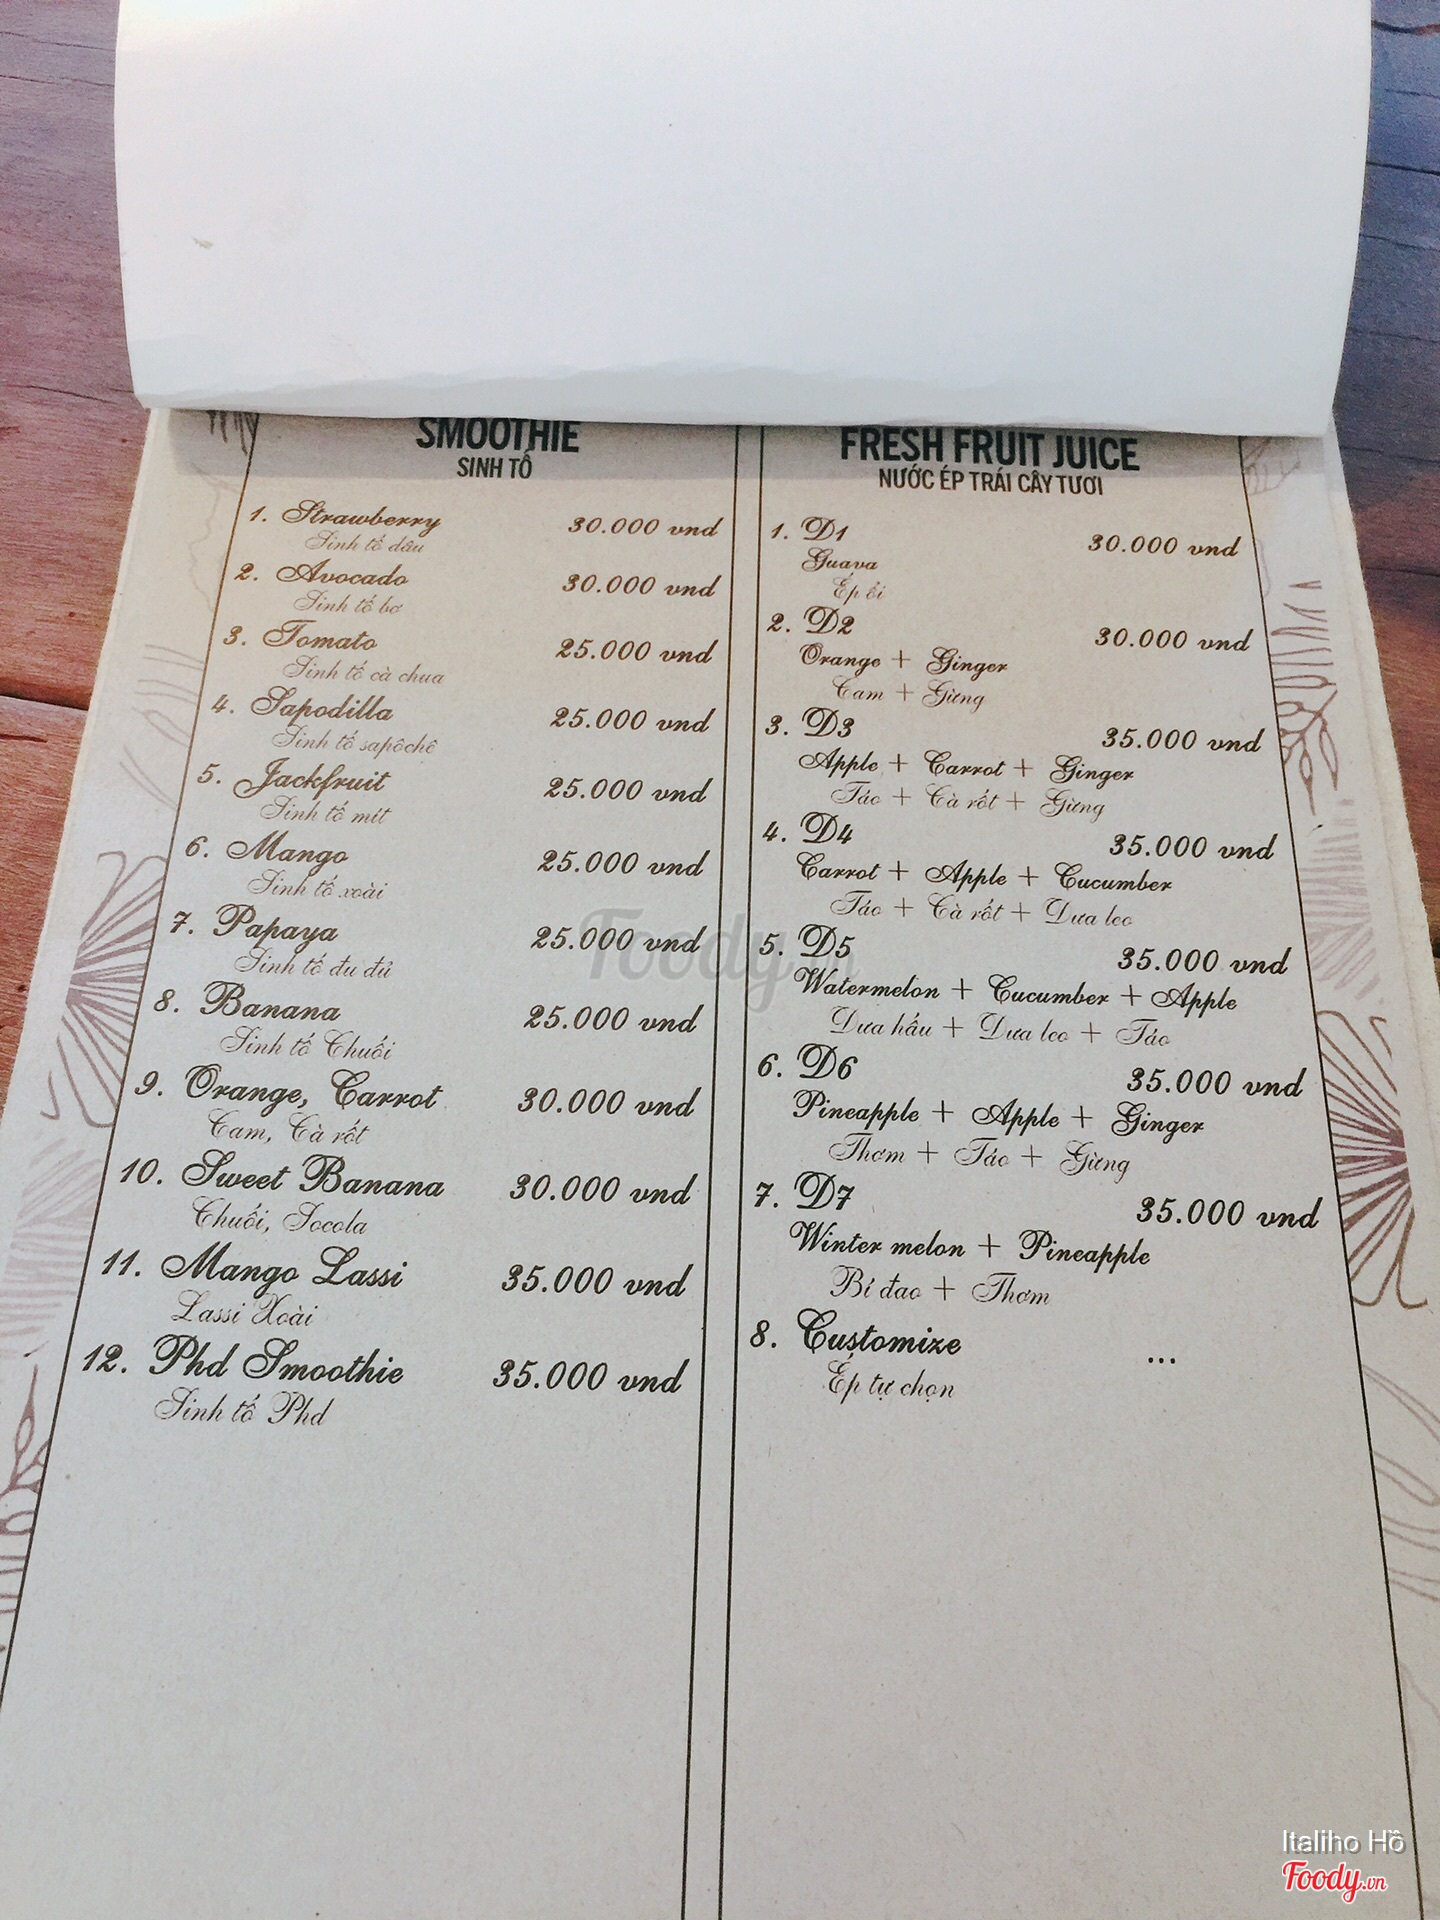 SMOOTHIE
SINH TỐ
1. Strawberry 30.000 vnd
Sinh tố dâu
2. Avocado 30.000 vnd
Sinh tố bơ
3. Tomato 25.000 vnd
Sinh tố cà chua
4. Sapodilla 25.000 vnd
Sinh tố sapôchê
5. Jackfruit 25.000 vnd
Sinh tố mít
6. Mango 25.000 vnd
Sinh tố xoài
7. Papaya 25.000 vnd
Sinh tố đu đủ
8. Banana 25.000 vnd
Sinh tố Chuối
9. Orange, Carrot 30.000 vnd
Cam, Cà rốt
10. Sweet Banana 30.000 vnd
Chuối, Socola
11. Mango Lassi 35.000 vnd
Lassi Xoài
12. Phd Smoothie 35.000 vnd
Sinh tố Phd
FRESH FRUIT JUICE
NƯỚC ÉP TRÁI CÂY TƯƠI
1. D1 30.000 vnd
Guava
Ép ổi
2. D2 30.000 vnd
Orange + Ginger
Cam + Gừng
3. D3 35.000 vnd
Apple + Carrot + Ginger
Táo + Cà rốt + Gừng
4. D4 35.000 vnd
Carrot + Apple + Cucumber
Táo + Cà rốt + Dưa leo
5. D5 35.000 vnd
Watermelon + Cucumber + Apple
Dưa hấu + Dưa leo + Táo
6. D6 35.000 vnd
Pineapple + Apple + Ginger
Thơm + Táo + Gừng
7. D7 35.000 vnd
Winter melon + Pineapple
Bí đao + Thơm
8. Customize ...
Ép tự chọn
Foody.vn
Italiho Hồ
Foody.vn